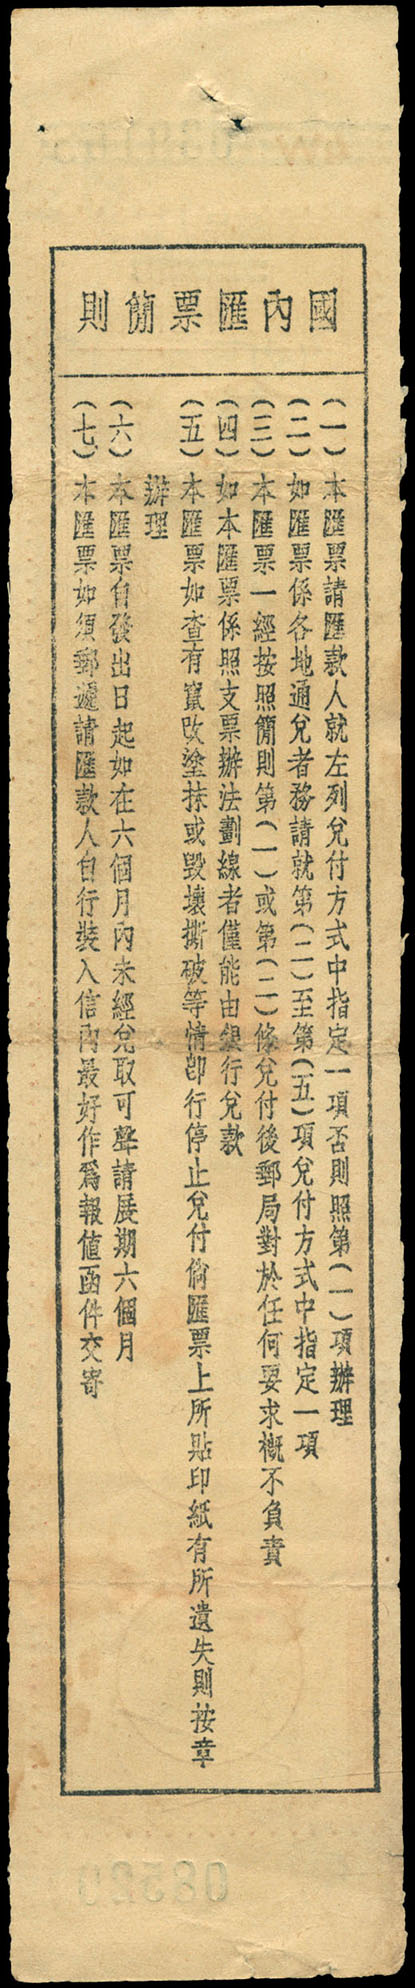 國內匯票簡則
(一)本匯票請匯款人就左列兌付方式中指定一項否則照第(一)項辦理
(二)如匯票係各地通兌者務請就第(二)至第(五)項兌付方式中指定一項
(三)本匯票一經按照簡則第(一)或第(二)條兌付後郵局對於任何要求概不負責
(四)如本匯票係照支票辦法劃線者僅能由銀行兌款
(五)本匯票如查有竄改塗抹或毀壞撕破等情卽行停止兌付倘匯票上所貼印紙有所遺失則按章
辦理
(六)本匯票自發出日起如在六個月內未經兌取可聲請展期六個月
(七)本匯票如須郵遞請匯款人自行裝入信內最好作爲報値函件交寄